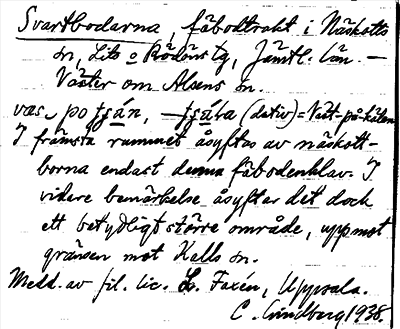 Svartbodarna, fäbodtrakt i Näskotts
sn, Lits o Rödöns tg, Jämtl. län. —
Väster om Alsens sn.
(dativ) = Väst-på-kälen
I främsta rummet åsyftas av näskott-
borna endast denna fäbodenklav. I
vidare bemärkelse åsyftar det dock
ett betydligt större område, upp mot
gränsen mot Kalls sn.
Medd. av fil. lic. L. Faxén, Uppsala.
C. Lindberg 1938.